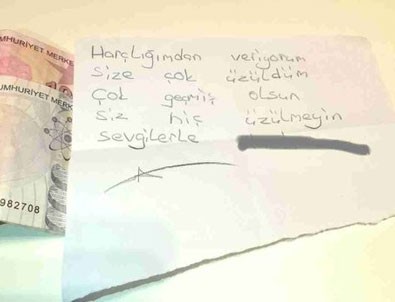 MHURİYET MERKE
UMHURİYET MERK
982708
Harçlığımdan veriyorum
Size çok üzüldüm
Çok geçmiş olsun
Siz hiç üzülmeyin
sevgilerle